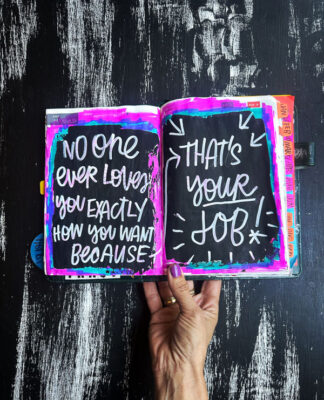 No one
ever loves
you exactly
how you want
because
That's
your
job!*